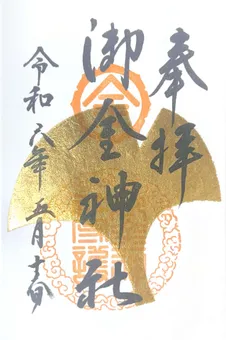 奉拝
御金神社
令和六年五月十四日